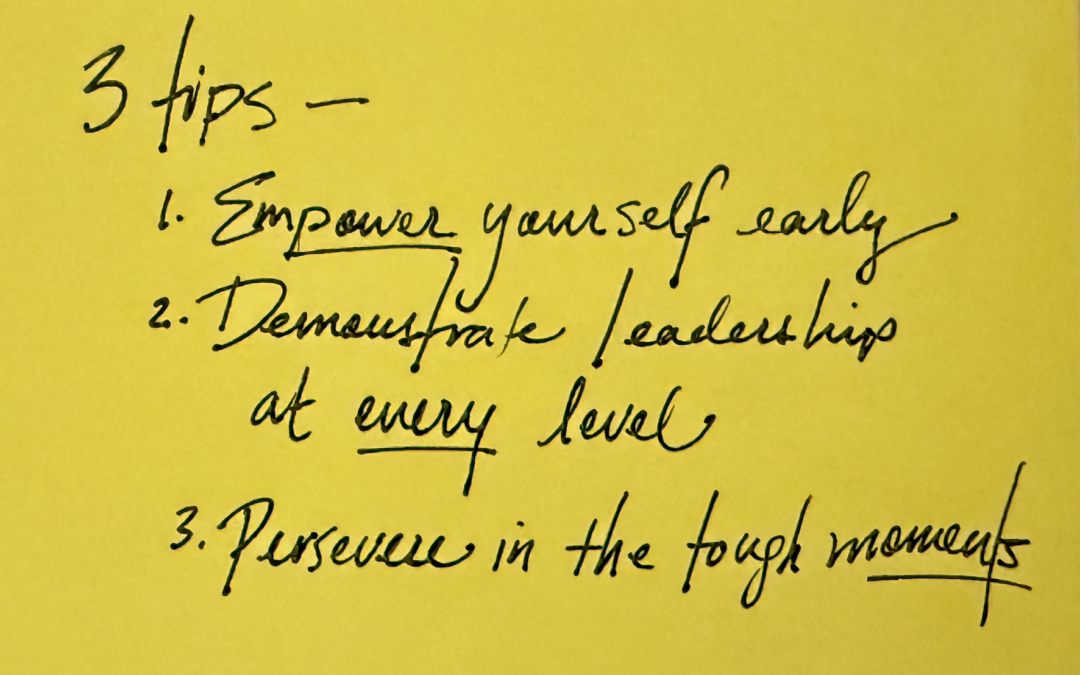 3 tips —
1. Empower yourself early
2. Demonstrate leadership
at every level
3. Persevere in the tough moments